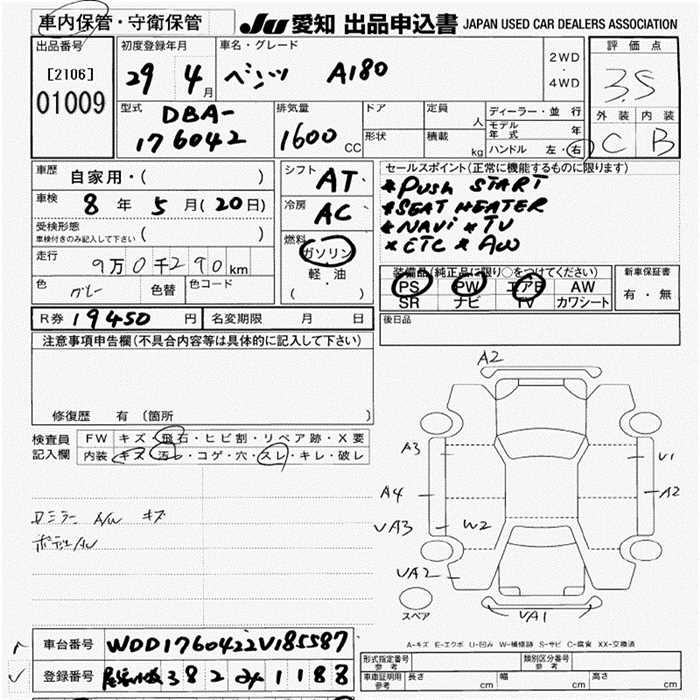 車内保管・守衛保管
JU 愛知 出品申込書 JAPAN USED CAR DEALERS ASSOCIATION
出品番号
[2106]
01009
初度登録年月
29 4月
車名・グレード
ベンツ A180
2WD
・
4WD
評価点
3.5
外装 内装
C B
型式
DBA-
176042
排気量
1600 CC
ドア
形状
定員 人
積載 kg
ディーラー・並行
モデル年式 年
ハンドル 左・右
車歴 自家用・( )
車検 8年 5月(20日)
受検形態
車検付きのみ記入して下さい ( )
走行 9万0千290km
色 グレー 色替 色コード
シフト AT
冷房 AC
燃料
ガソリン
軽・油
( )
セールスポイント(正常に機能するものに限ります)
*PUSH START
*SEAT HEATER
*NAVI *TV
*ETC *AW
装備品(純正品に限り○をつけてください)
PS PW エアB AW
SR ナビ TV カワシート
新車保証書
有・無
R券 19450円 名変期限 月 日
後日品
注意事項申告欄(不具合内容等は具体的に記入して下さい)
修復歴 有(箇所 )
検査員
記入欄
FW キズ・飛石・ヒビ割・リペア跡・X要
内装 キズ・汚れ・コゲ・穴・スレ・キレ・破レ
ミラー A/W キズ
A2
A3
U1
A4
A2
UA3
W2
UA2
UA1
スペア
A-キズ E-エクボ U-凹み W-補修跡 S-サビ C-腐食 XX-交換済
車台番号 WDD1760422V185587
登録番号 382 1188
形式指定番号
参考
類別区分番号
参考
車庫証明用
参考
長さ cm 幅 cm 高さ cm